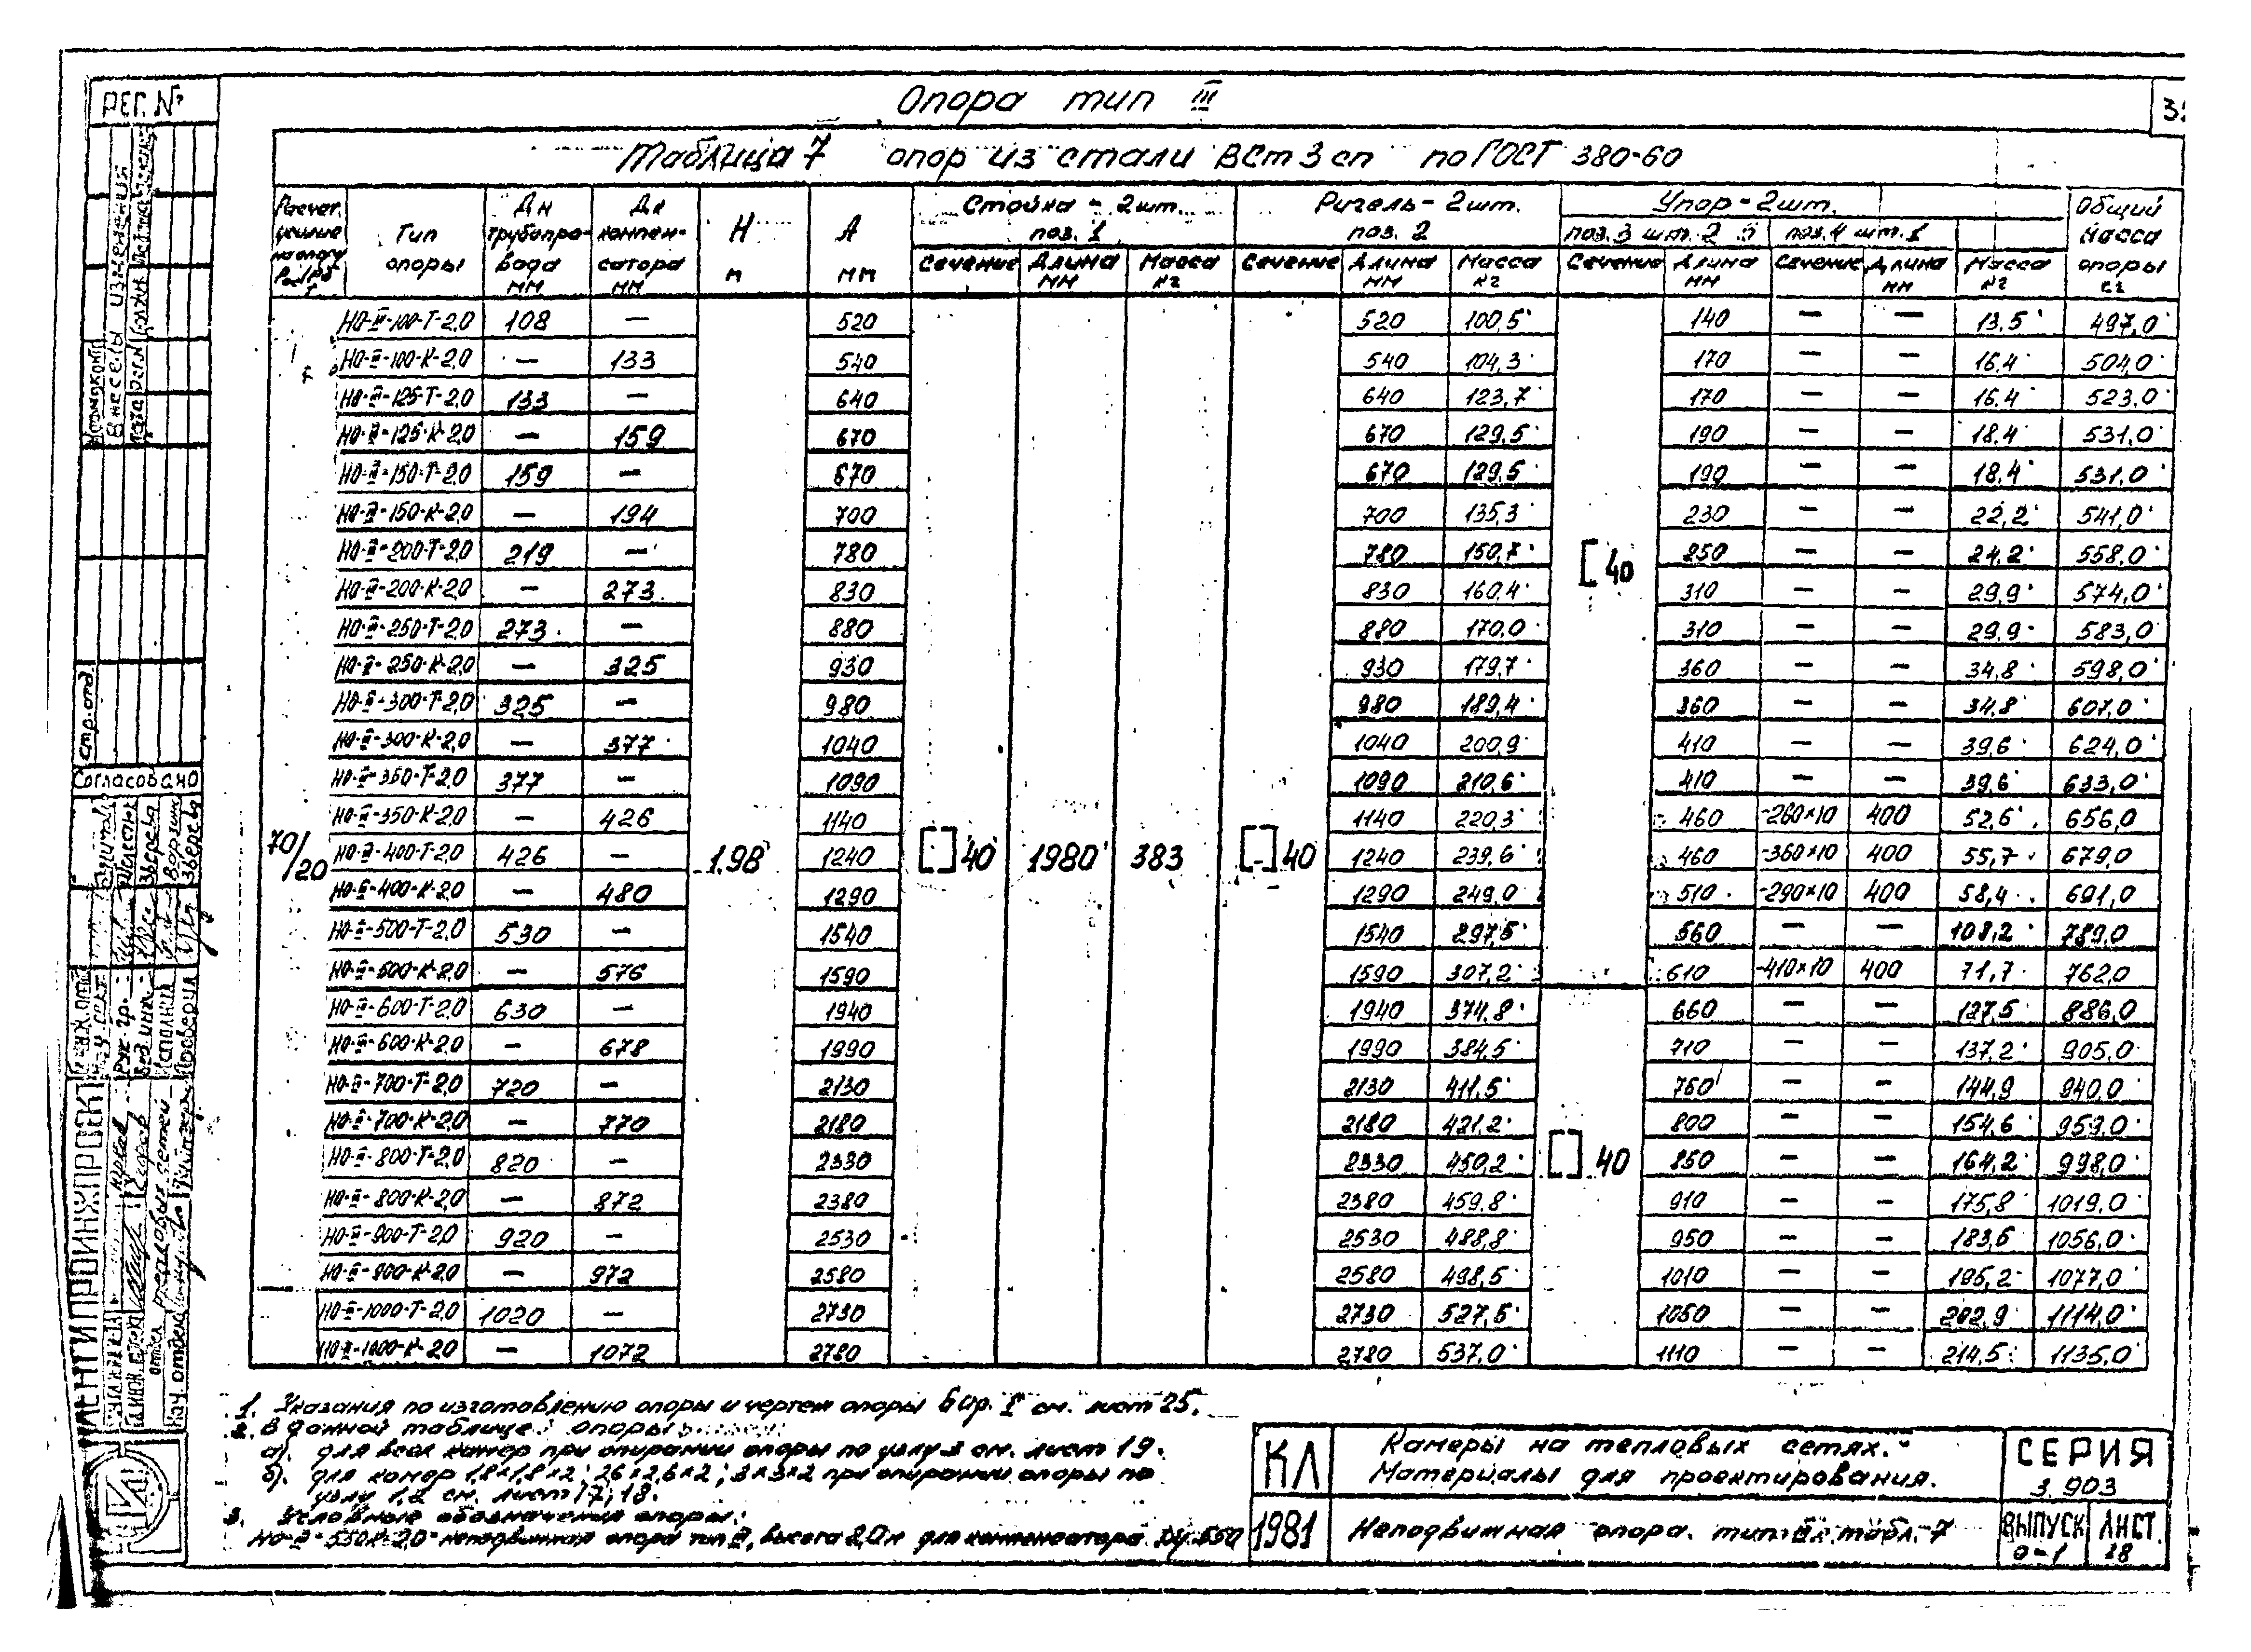 Опора тип III
РЕГ. №
Таблица 7 опор из стали ВСт 3 сп по ГОСТ 380-60
Тип опоры
Дн трубопровода мм
Дк компенсатора мм
Н м
А мм
Стойка - 2шт. поз. 1
Ригель - 2шт. поз. 2
Упор - 2шт.
поз. 3 шт. 2 поз. 4 шт. 1
Общий масса опоры кг
Сечение Длина мм Масса кг Сечение Длина мм Масса кг Сечение Длина мм Сечение Длина мм Масса кг
НО-III-100-Т-2,0 108 — 520 520 100,5 140 — — 13,5 497,0
НО-III-100-К-2,0 — 133 540 540 104,3 170 — — 16,4 504,0
НО-III-125-Т-2,0 133 — 640 640 123,7 170 — — 16,4 523,0
НО-III-125-К-2,0 — 159 670 670 129,5 190 — — 18,4 531,0
НО-III-150-Т-2,0 159 — 670 670 129,5 190 — — 18,4 531,0
НО-III-150-К-2,0 — 194 700 700 135,3 230 — — 22,2 541,0
НО-III-200-Т-2,0 219 — 780 780 150,7 250 — — 24,2 558,0
[ 40
НО-III-200-К-2,0 — 273 830 830 160,4 310 — — 29,9 574,0
НО-III-250-Т-2,0 273 — 880 880 170,0 310 — — 29,9 583,0
НО-III-250-К-2,0 — 325 930 930 179,7 360 — — 34,8 598,0
НО-III-300-Т-2,0 325 — 980 980 189,4 360 — — 34,8 607,0
НО-III-300-К-2,0 — 377 1040 1040 200,9 410 — — 39,6 624,0
НО-III-350-Т-2,0 377 — 1090 1090 210,6 410 — — 39,6 633,0
НО-III-350-К-2,0 — 426 1140 1140 220,3 460 -260×10 400 52,6 656,0
НО-III-400-Т-2,0 426 — 1240 1240 239,6 460 -360×10 400 55,7 679,0
70/20 1.98 [ ] 40 1980 383 [ ] 40
НО-III-400-К-2,0 — 480 1290 1290 249,0 510 -290×10 400 58,4 691,0
НО-III-500-Т-2,0 530 — 1540 1540 297,5 560 — — 108,2 789,0
НО-III-500-К-2,0 — 576 1590 1590 307,2 610 -410×10 400 71,7 762,0
НО-III-600-Т-2,0 630 — 1940 1940 374,8 660 — — 127,5 886,0
НО-III-600-К-2,0 — 678 1990 1990 384,5 710 — — 137,2 905,0
НО-III-700-Т-2,0 720 — 2130 2130 411,5 750 — — 144,9 940,0
НО-III-700-К-2,0 — 770 2180 2180 421,2 800 — — 154,6 959,0
НО-III-800-Т-2,0 820 — 2330 2330 450,2 [ ] 40 850 — — 164,2 998,0
НО-III-800-К-2,0 — 872 2380 2380 459,8 910 — — 175,8 1019,0
НО-III-900-Т-2,0 920 — 2530 2530 488,8 950 — — 183,6 1056,0
НО-III-900-К-2,0 — 972 2580 2580 498,5 1010 — — 195,2 1077,0
НО-III-1000-Т-2,0 1020 — 2730 2730 527,5 1050 — — 202,9 1114,0
НО-III-1000-К-2,0 — 1072 2780 2780 537,0 1110 — — 214,5 1135,0
1. Указания по изготовлению опоры и чертеж опоры см. лист 25.
2. В данной таблице опоры
а). для всех камер при опирании опоры по узлу 3 см. лист 19.
б). для камер 1,8×1,8×2; 2,6×2,6×2; 3×3×2 при опирании опоры по
узлу 1,2 см. лист 17, 18.
3. Условные обозначения опоры:
неподвижная опора тип III, высота 2,0 м для компенсатора
КЛ
1981
Камеры на тепловых сетях.
Материалы для проектирования.
Неподвижная опора. тип III табл. 7
СЕРИЯ
3.903
ВЫПУСК 0-1
ЛИСТ 28
Внесены изменения
стр. отд.
Согласовано
Рук. гр.
Исполнил
Проверил
ЛЕНГИПРОИНЖПРОЕКТ